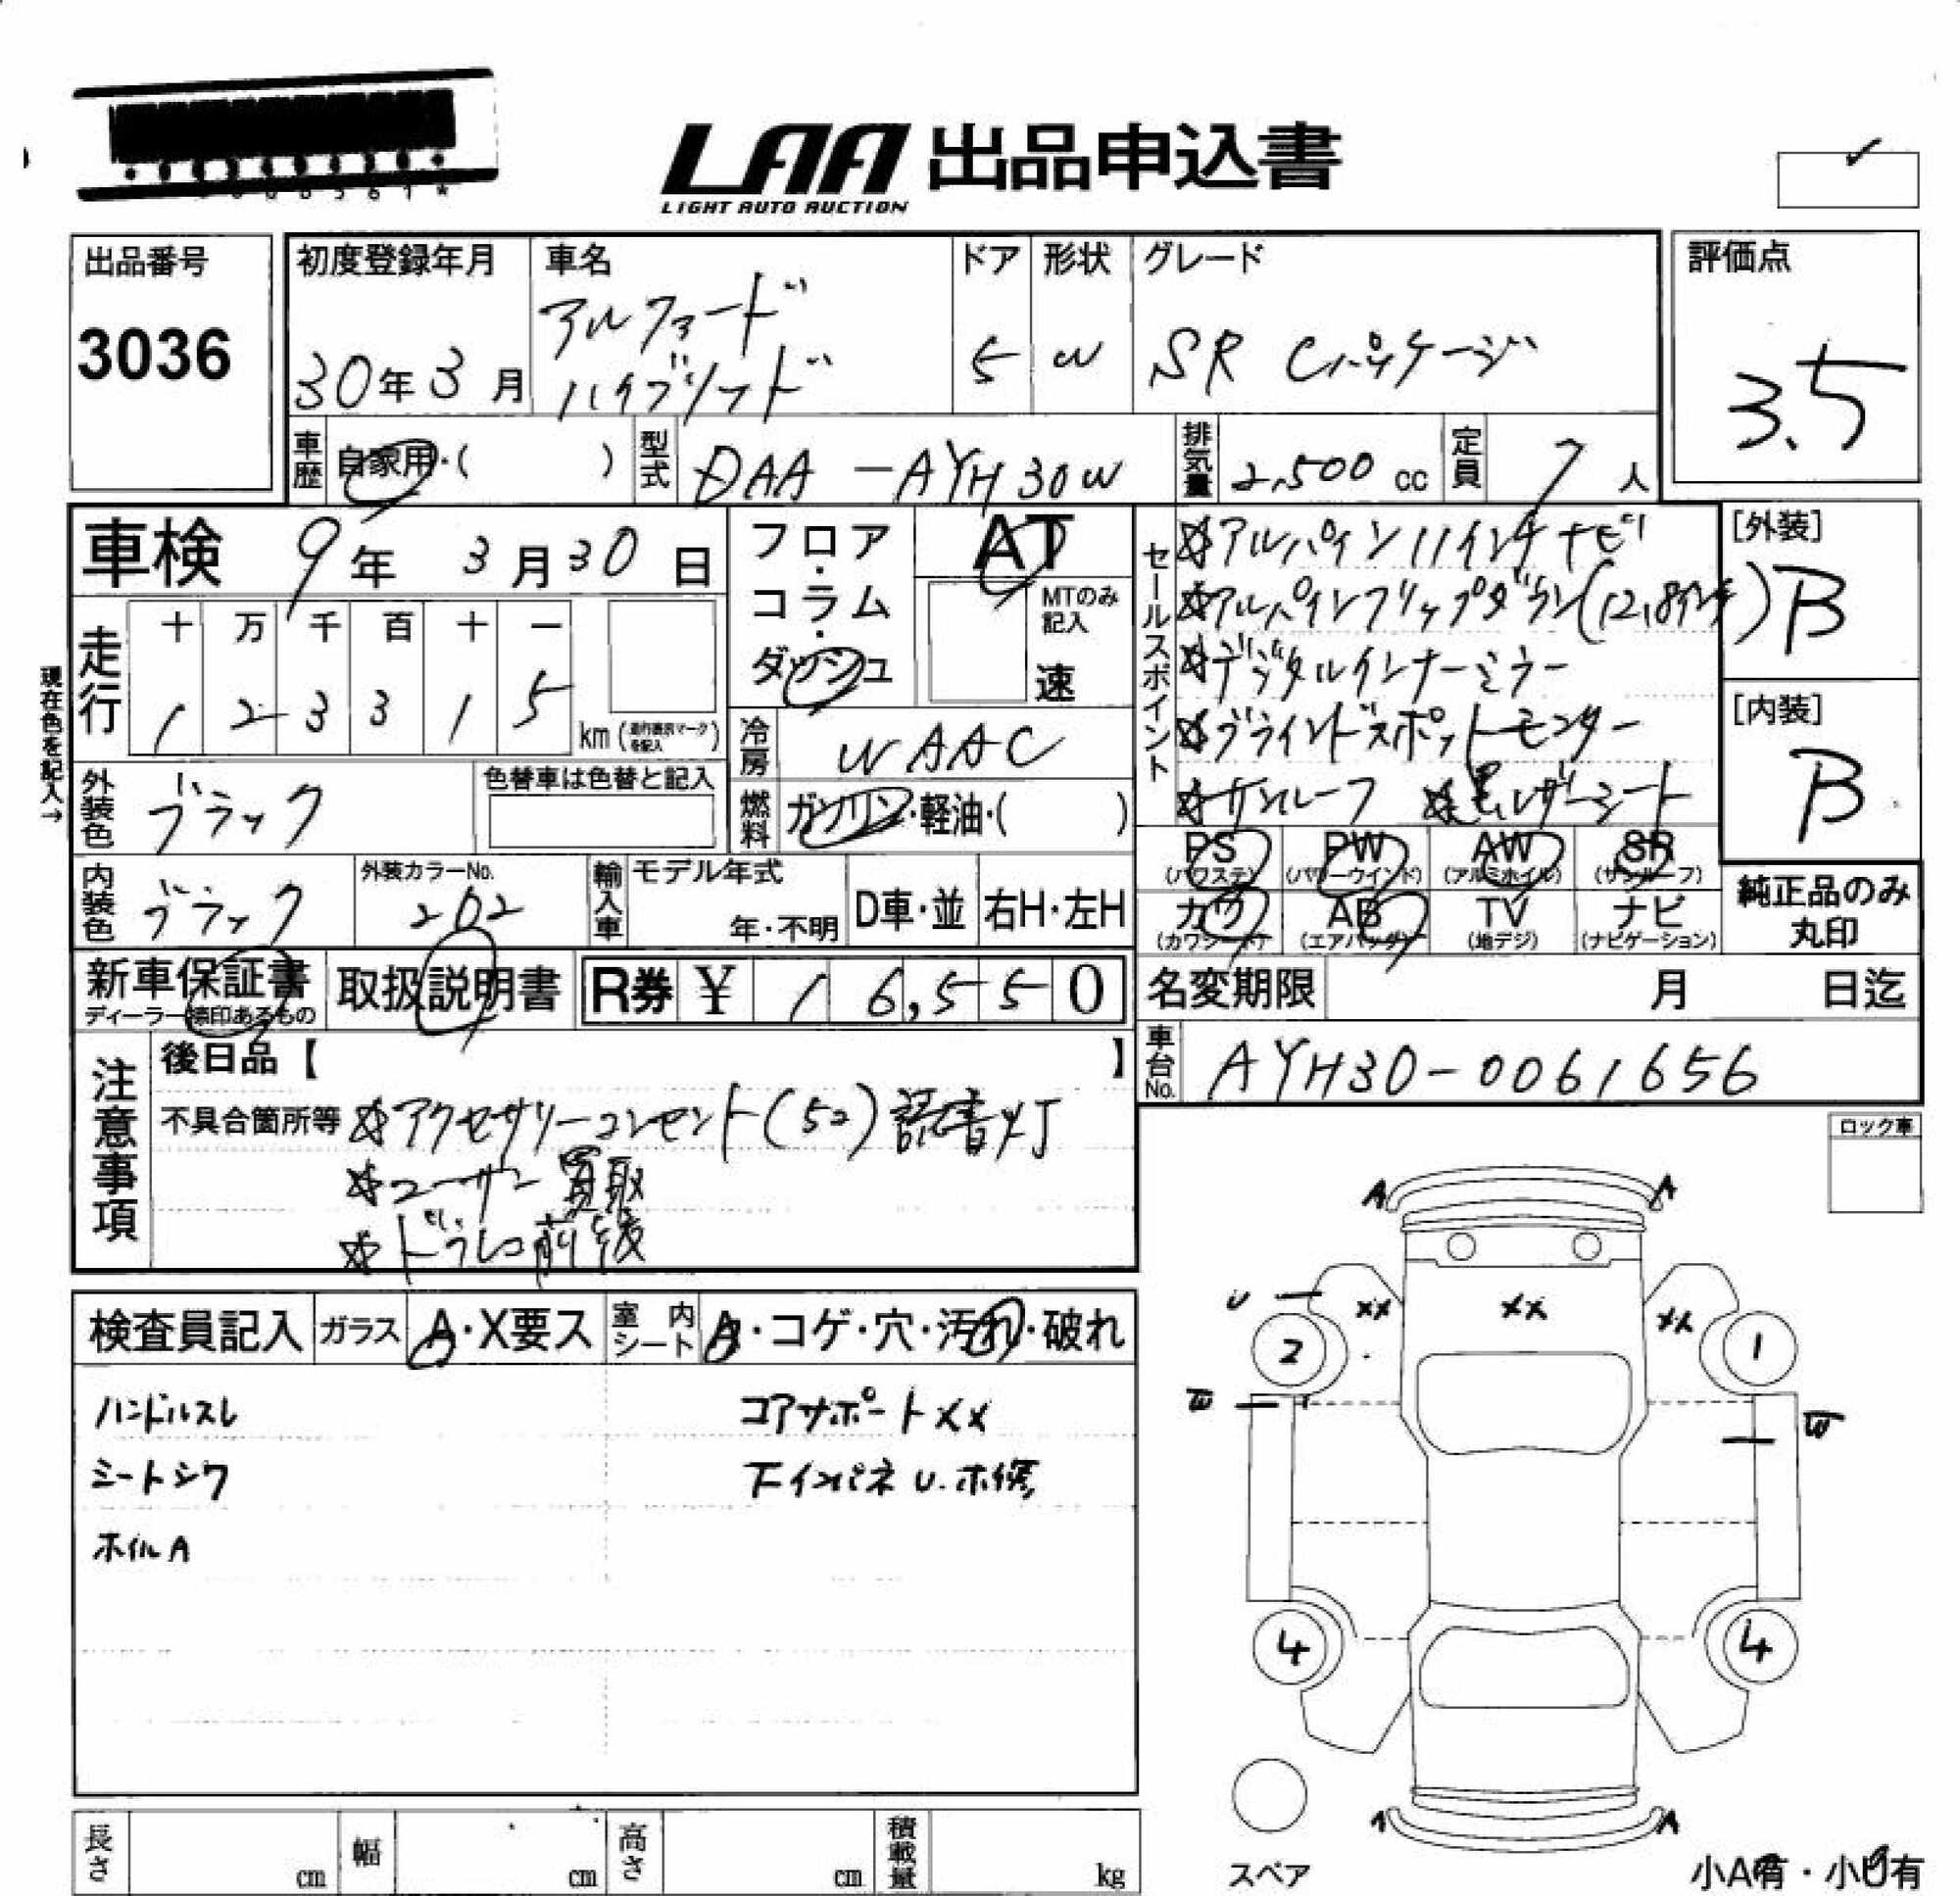 LAA 出品申込書
LIGHT AUTO AUCTION
出品番号
3036
初度登録年月
30年3月
車名
アルファード
ハイブリッド
ドア
5
形状
W
グレード
SR Cパッケージ
評価点
3.5
車歴
自家用・( )
型式
DAA-AYH30W
排気量
2,500 cc
定員
7人
車検 9年 3月30日
フロア・コラム・ダッシュ
AT
MTのみ記入
速
走行
十 万 千 百 十 一
1 2 3 3 1 5 km
現在色を記入→
冷房
WAAC
燃料
ガソリン・軽油・( )
外装色
ブラック
色替車は色替と記入
内装色
ブラック
外装カラーNo.
202
輸入車
モデル年式
年・不明
D車・並
右H・左H
セールスポイント
☆アルパイン11インチナビ
☆アルパインフリップダウン(12.8インチ)
☆デジタルインナーミラー
☆ブラインドスポットモニター
☆サンルーフ ☆黒レザーシート
[外装]
B
[内装]
B
PS
(パワステ)
PW
(パワーウインド)
AW
(アルミホイル)
SR
(サンルーフ)
カワ
(カワシート)
AB
(エアバッグ)
TV
(地デジ)
ナビ
(ナビゲーション)
純正品のみ
丸印
新車保証書
ディーラー捺印あるもの
取扱説明書
R券 ¥ 16,550
名変期限 月 日迄
車台No.
AYH30-0061656
注意事項
後日品【 】
不具合箇所等 ☆アクセサリーコンセント(52)読書灯
☆ユーザー買取
☆ドラレコ前後
ロック車
検査員記入
ガラス
A・X要ス
室内シート
A・コゲ・穴・汚れ・破れ
ハンドルスレ
コアサポートXX
シートシワ
下インパネU.ホ修
ホイルA
A A
U XX XX XX
2 1
W W
4 4
A A
スペア
小A有・小U有
長さ cm
幅 cm
高さ cm
積載量 kg